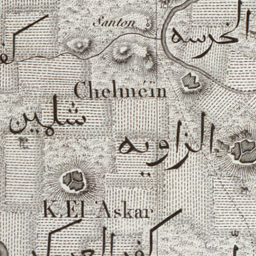 Santon
الخرسه
Chelmèin
شلمين
الزاويه
K. El Askar
كفر العسكر